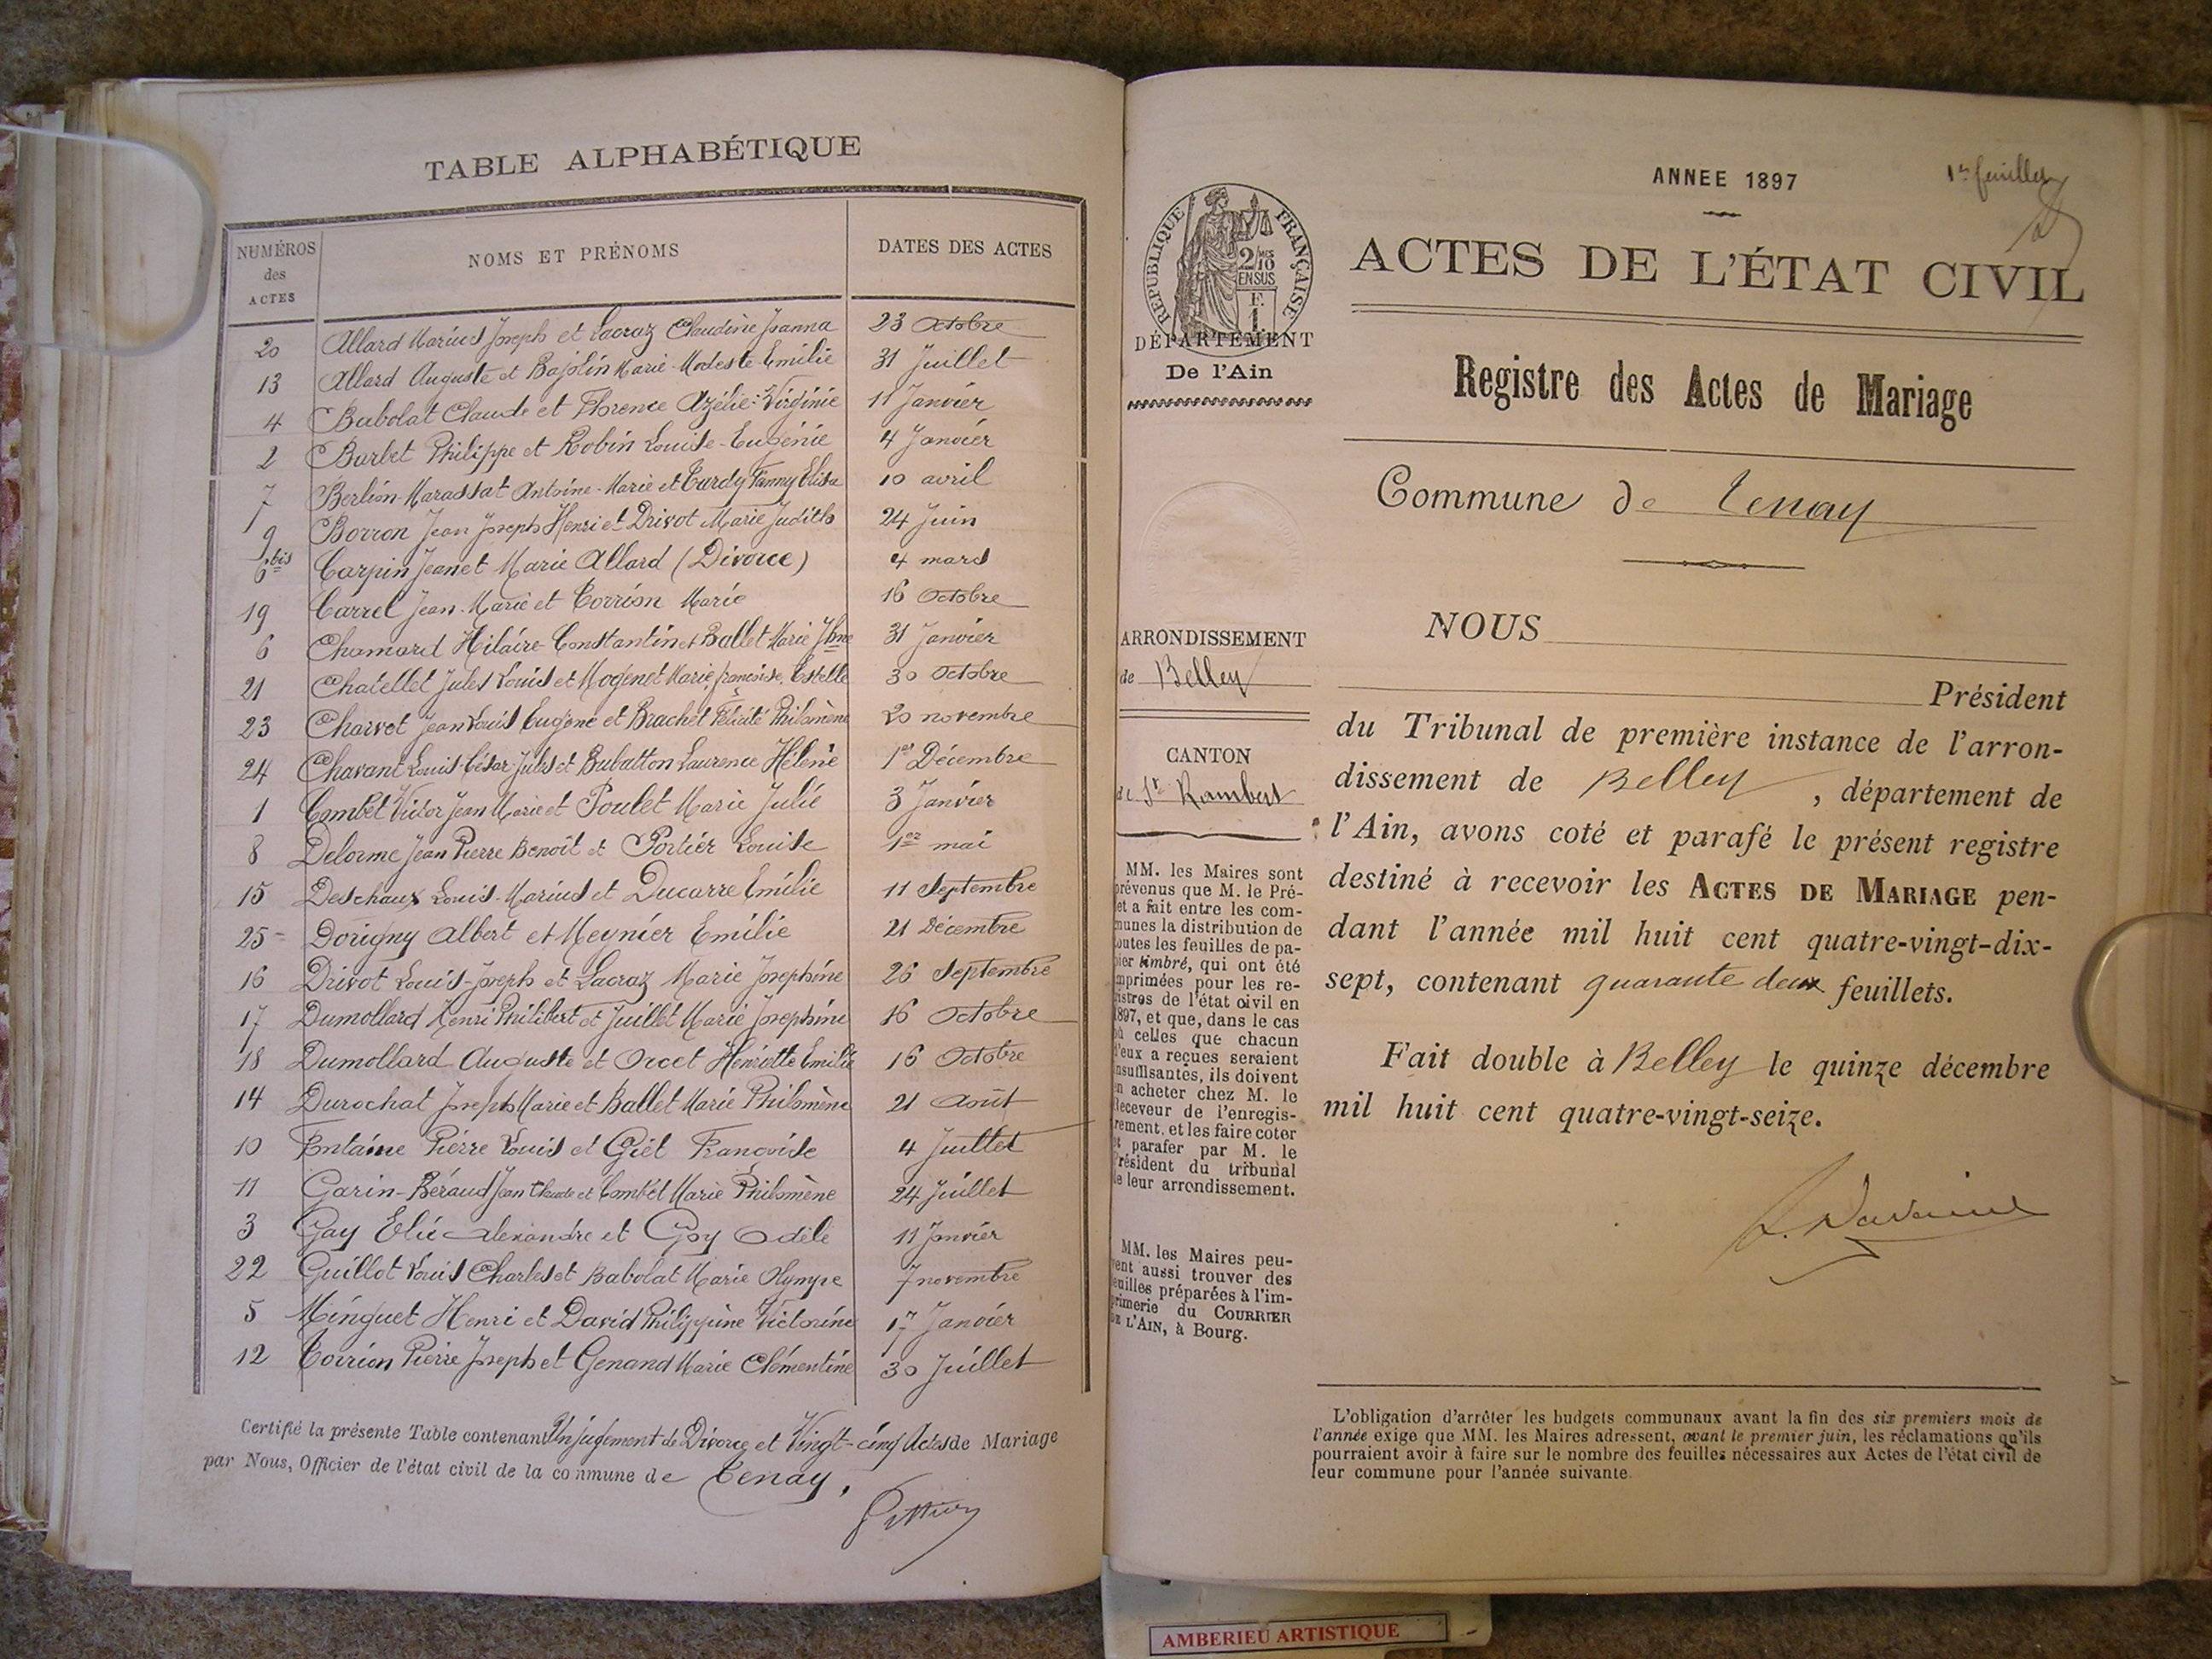 TABLE ALPHABÉTIQUE
NUMÉROS des ACTES NOMS ET PRÉNOMS DATES DES ACTES
20 Allard Marius Joseph et Lacraz Claudine Joanna 23 Octobre
13 Allard Auguste et Bajolin Marie-Modeste-Emilie 31 Juillet
4 Babolat Claude et Florence Azélie-Virginie 11 Janvier
2 Barbet Philippe et Robin Louise-Eugénie 4 Janvier
7 Berlion-Marassat Antoine-Marie et Tardy Fanny Elisa 10 avril
9 Borron Jean Joseph Henri et Drivot Marie Judith 24 Juin
6 bis Carpin Jean et Marie Allard (Divorce) 4 mars
19 Carrel Jean-Marie et Corrion Marie 16 Octobre
6 Chamard Hilaire-Constantin et Ballet Marie Jhne 31 Janvier
21 Chatellet Jules Louis et Mogenet Marie françoise Estelle 30 Octobre
23 Charvet Jean Louis Eugène et Brachet Félicité Philomène 20 novembre
24 Chavant Louis-César Jules et Bubatton Laurence Hélène 1er Décembre
1 Combet Victor Jean Marie et Poulet Marie Julie 3 Janvier
8 Delorme Jean Pierre Benoît et Portier Louise 1er mai
15 Deschaux Louis-Marius et Ducarre Emilie 11 Septembre
25 Dorigny Albert et Meynier Emilie 21 Décembre
16 Drivot Louis-Joseph et Lacraz Marie Josephine 26 Septembre
17 Dumollard Henri Philibert et Juillet Marie Josephine 16 Octobre
18 Dumollard Auguste et Orcet Henriette Emilie 16 Octobre
14 Durochat Joseph Marie et Ballet Marie Philomène 21 Août
10 Entaime Pierre Louis et Giet Françoise 4 Juillet
11 Garin-Béraud Jean Claude et Combet Marie Philomène 24 Juillet
3 Gay Elie Alexandre et Goy Odèle 11 Janvier
22 Guillot Louis Charles et Babolat Marie Olympe 7 novembre
5 Minguet Henri et David Philippine Victorine 17 Janvier
12 Corrion Pierre Joseph et Genand Marie Clémentine 30 Juillet
Certifié la présente Table contenant Un jugement de Divorce et Vingt-cinq Actes de Mariage
par Nous, Officier de l'état civil de la commune de Tenay,
ANNEE 1897
1er feuillet
RÉPUBLIQUE FRANÇAISE
2/10 MES
EN SUS
F.
1
ACTES DE L'ÉTAT CIVIL
DÉPARTEMENT
De l'Ain
Registre des Actes de Mariage
Commune de Tenay
NOUS
Président
du Tribunal de première instance de l'arron-
dissement de Belley, département de
l'Ain, avons coté et parafé le présent registre
destiné à recevoir les ACTES DE MARIAGE pen-
dant l'année mil huit cent quatre-vingt-dix-
sept, contenant quarante deux feuillets.
Fait double à Belley le quinze décembre
mil huit cent quatre-vingt-seize.
ARRONDISSEMENT
de Belley
CANTON
de St Rambert
MM. les Maires sont
prévenus que M. le Pré-
et a fait entre les com-
munes la distribution de
toutes les feuilles de pa-
pier timbré, qui ont été
imprimées pour les re-
gistres de l'état civil en
1897, et que, dans le cas
où celles que chacun
d'eux a reçues seraient
insuffisantes, ils doivent
en acheter chez M. le
Receveur de l'enregis-
trement, et les faire coter
et parafer par M. le
Président du tribunal
de leur arrondissement.
MM. les Maires peu-
vent aussi trouver des
feuilles préparées à l'im-
primerie du COURRIER
DE L'AIN, à Bourg.
L'obligation d'arrêter les budgets communaux avant la fin des six premiers mois de
l'année exige que MM. les Maires adressent, avant le premier juin, les réclamations qu'ils
pourraient avoir à faire sur le nombre des feuilles nécessaires aux Actes de l'état civil de
leur commune pour l'année suivante.
AMBERIEU ARTISTIQUE